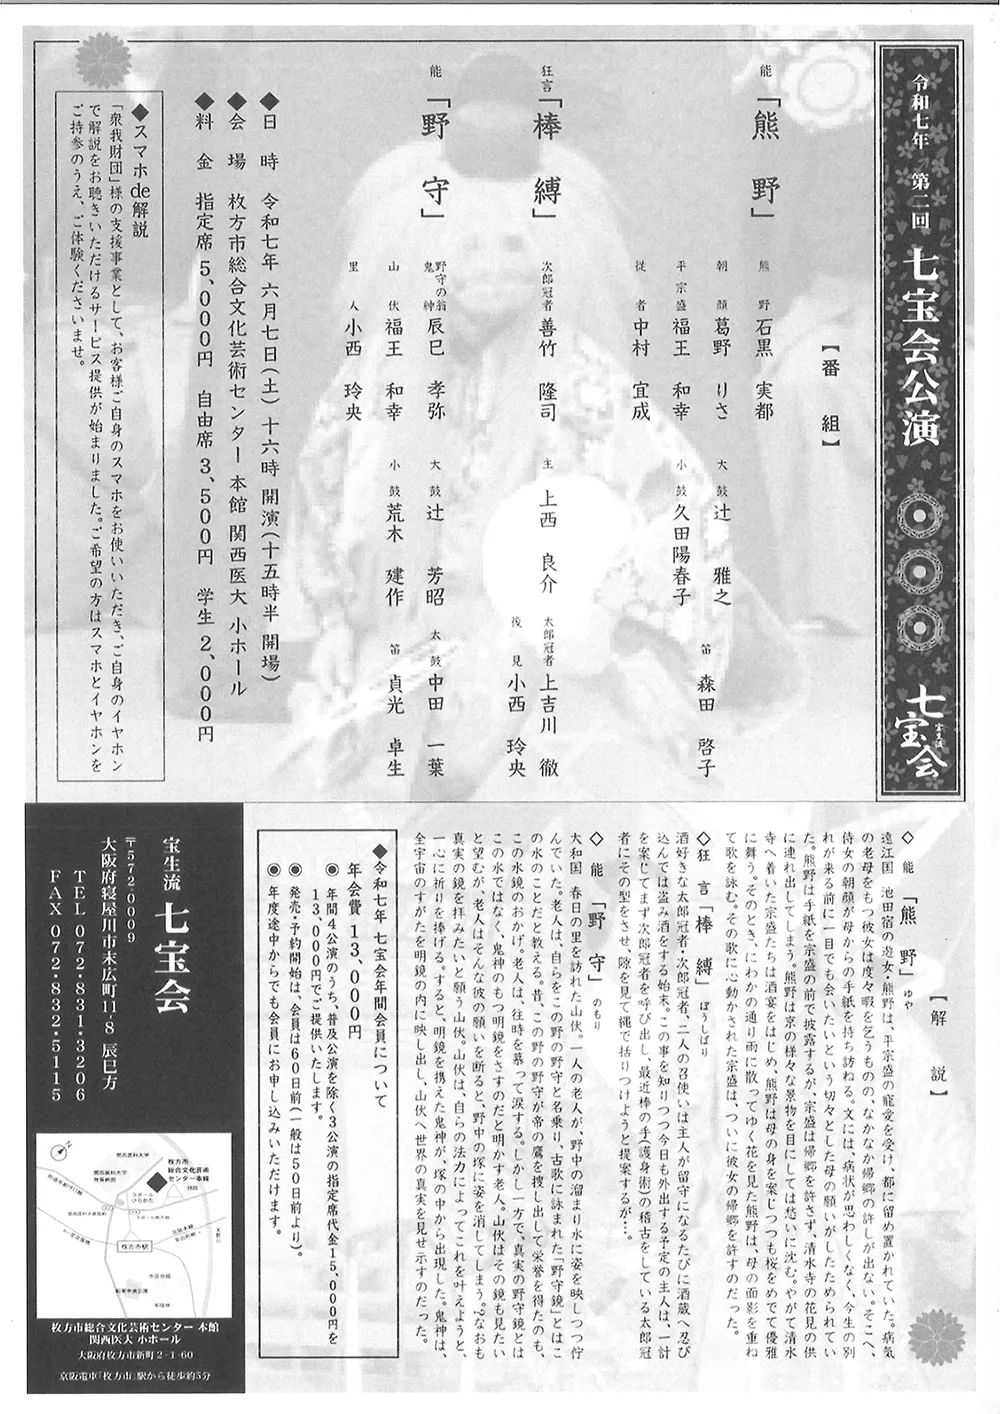 令和七年 第二回 七宝会公演
宝生流 七宝会
【番組】
能「熊野」
熊野 石黒 実都
朝顔 葛野 りさ
平宗盛 福王 和幸
従者 中村 宜成
大鼓 辻 雅之
小鼓 久田陽春子
笛 森田 啓子
狂言「棒縛」
次郎冠者 善竹 隆司
主 上西 良介
太郎冠者 上吉川 徹
後見 小西 玲央
能「野守」
野守の翁
鬼神 辰巳 孝弥
山伏 福王 和幸
里人 小西 玲央
大鼓 辻 芳昭
小鼓 荒木 建作
太鼓 中田 一葉
笛 貞光 卓生
◆日時 令和七年 六月七日(土) 十六時 開演(十五時半 開場)
◆会場 枚方市総合文化芸術センター 本館 関西医大 小ホール
◆料金 指定席 5,000円 自由席 3,500円 学生 2,000円
◆スマホde解説
「衆我財団」様の支援事業として、お客様ご自身のスマホをお使いいただき、ご自身のイヤホン
で解説をお聴きいただけるサービス提供が始まりました。ご希望の方はスマホとイヤホンを
ご持参のうえ、ご体験くださいませ。
【解説】
◇能「熊野」ゆや
遠江国 池田宿の遊女・熊野は、平宗盛の寵愛を受け、都に留め置かれていた。病気
の老母をもつ彼女は度々暇を乞うものの、なかなか帰郷の許しが出ない。そこへ、
侍女の朝顔が母からの手紙を持ち訪ねる。文には、病状が思わしくなく、今生の別
れが来る前に一目でも会いたいという切々とした母の願いがしたためられてい
た。熊野は手紙を宗盛の前で披露するが、宗盛は帰郷を許さず、清水寺の花見の供
に連れ出してしまう。熊野は京の様々な景物を目にしては愁いに沈む。やがて清水
寺へ着いた宗盛たちは酒宴をはじめ、熊野は母の身を案じつつも桜をめでて優雅
に舞う。そのとき、にわかの通り雨に散ってゆく花を見た熊野は、母の面影を重ね
て歌を詠む。その歌に心動かされた宗盛は、ついに彼女の帰郷を許すのだった。
◇狂言「棒縛」ぼうしばり
酒好きな太郎冠者・次郎冠者、二人の召使いは主人が留守になるたびに酒蔵へ忍び
込んでは盗み酒をする始末。この事を知りつつ今日も外出する予定の主人は、一計
を案じてまず次郎冠者を呼び出し、最近棒の手(護身術)の稽古をしている太郎冠
者にその型をさせ、隙を見て縄で括りつけようと提案するが…。
◇能「野守」のもり
大和国 春日の里を訪れた山伏。一人の老人が、野中の溜まり水に姿を映しつつ佇
んでいた。老人は、自らをこの野の野守と名乗り、古歌に詠まれた「野守鏡」とはこ
の水のことだと教える。昔、この野の野守が帝の鷹を捜し出して栄誉を得たのも、
この水鏡のおかげ。老人は、往時を慕って涙する。しかし一方で、真実の野守鏡とは
この水ではなく、鬼神のもつ明鏡をさすのだと明かす老人。山伏はその鏡も見たい
と望むが、老人はそんな彼の願いを断ると、野中の塚に姿を消してしまう。?なおも
真実の鏡を拝みたいと願う山伏。山伏は、自らの法力によってこれを叶えようと、
一心に祈りを捧げる。すると、明鏡を携えた鬼神が、塚の中から出現した。鬼神は、
全宇宙のすがたを明鏡の内に映し出し、山伏へ世界の真実を見せ示すのだった。
◆令和七年 七宝会年間会員について
年会費 13,000円
◉年間4公演のうち、普及公演を除く3公演の指定席代金15,000円を
13,000円でご提供いたします。
◉発売・予約開始は、会員は60日前(一般は50日前より)。
◉年度途中からでも会員にお申し込みいただけます。
宝生流 七宝会
〒572-0009
大阪府寝屋川市末広町11-8 辰巳方
TEL 072・831・3206
FAX 072・832・5115
N
関西医科大学
枚方市
総合文化芸術
センター本館
関西医科大学
附属病院
ラポール
ひらかた
枚方市駅
枚方市総合文化芸術センター 本館
関西医大 小ホール
大阪府枚方市新町2-1-60
京阪電車「枚方市」駅から徒歩約5分